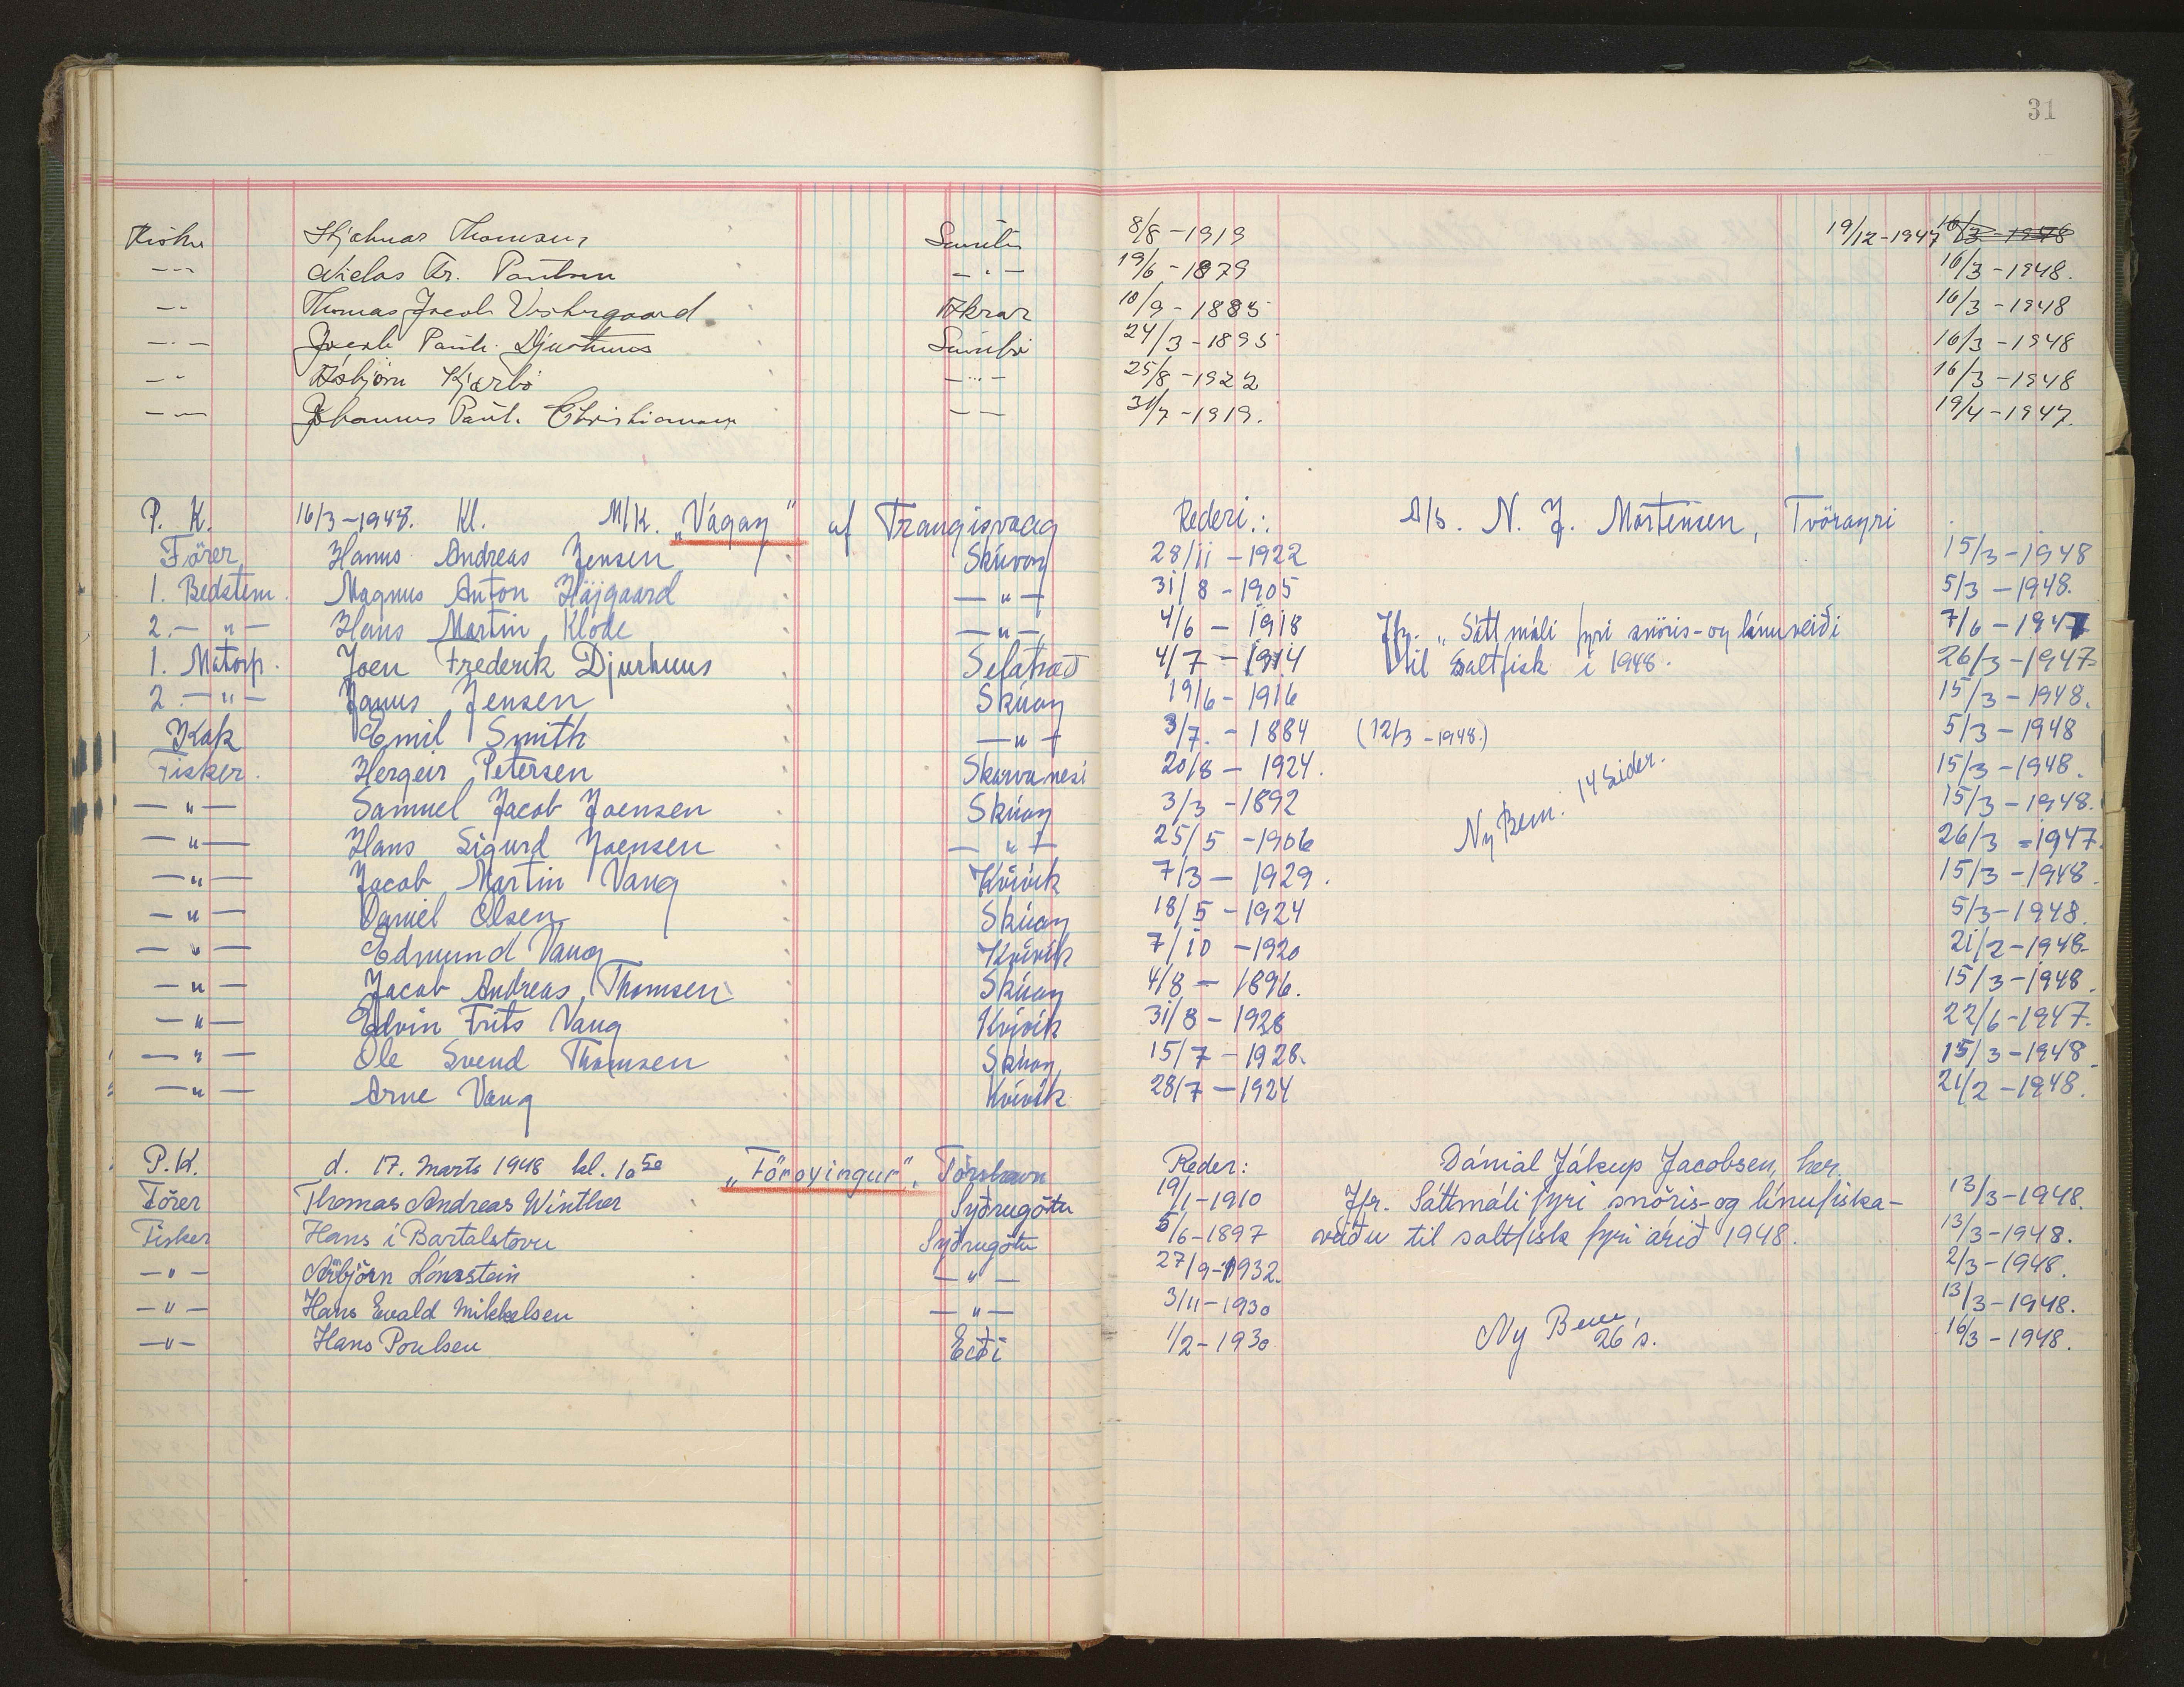 31
Hjalmar Thomsen 8/8-1919 19/12-1947 16/3-1948
— — Niclas Fr. Poulsen — " — 19/6-1879 16/3-1948.
— — Thomas Jacob Vestergaard Akrar 10/9-1885 16/3-1948
— " — Jacob Pauli Djurhuus Sumbö 24/3-1895 16/3-1948
— " Asbjörn Kjærbö — " — 25/8-1922 16/3-1948
— — Johannus Paul. Christiansen — — 31/7-1919. 19/4-1947.
P. K. 16/3-1948. Kl. M/K. „Vágay" af Trangisvaag Rederi: A/s. N. J. Mortensen, Tvörayri
Förer Hanus Andreas Jensen Skúvoy 28/11-1922 15/3-1948
1. Bedstem. Magnus Anton Höjgaard — " — 31/8-1905 5/3-1948.
2. — " — Hans Martin Klode — " — 4/6-1918 Jfr. „Sáttmáli fyri snöris-og línuveiði 7/6-1947
1. Motorp. Joen Frederik Djurhuus Selatrað 4/7-1914 til Saltfisk í 1948. 26/3-1947
2. — " — Janus Jensen Skúoy 19/6-1916 15/3-1948.
Kok Emil Smith — " — 3/7.-1884 (12/3-1948.) 5/3-1948
Fisker. Hergeir Petersen Skarvanesi 20/8-1924. 15/3-1948.
— " — Samuel Jacob Joensen Skúoy 3/3-1892 Ny Bem. 14 Sider. 15/3-1948.
— " — Hans Sigurd Joensen — " — 25/5-1906 26/3-1947.
— " — Jacob Martin Vang Kvívík 7/3-1929. 15/3-1948.
— " — Daniel Olsen Skúoy 18/5-1924 5/3-1948.
— " — Edmund Vang Kvívík 7/10-1920 21/2-1948.
— " — Jacob Andreas Thomsen Skúoy 4/8-1896. 15/3-1948.
— " — Edvin Frits Vang Kvívík 31/8-1926 22/6-1947.
— " — Ole Svend Thomsen Skúoy 15/7-1928. 15/3-1948
— " — Arne Vang Kvívík 28/7-1924 21/2-1948.
P.K. d. 17. Marts 1948 kl. 10 50 „Föroyingur". Tórshavn Reder: Dánial Jákup Jacobsen, her.
Förer Thomas Andreas Winther Syðrugötu 19/1-1910 Jfr. Sáttmáli fyri snöris-og línufiska- 13/3-1948.
Fisker Hans í Bartalstovu Syðrugötu 5/6-1897 veiðu til saltfisk fyri árið 1948. 13/3-1948.
— " — Arbjörn Lónastein — " — 27/9-1932. 2/3-1948.
— " — Hans Evald Mikkelsen — " — 3/11-1930 13/3-1948.
— " — Hans Poulsen Eiði 1/2-1930 Ny Bem. 26 s. 16/3-1948.